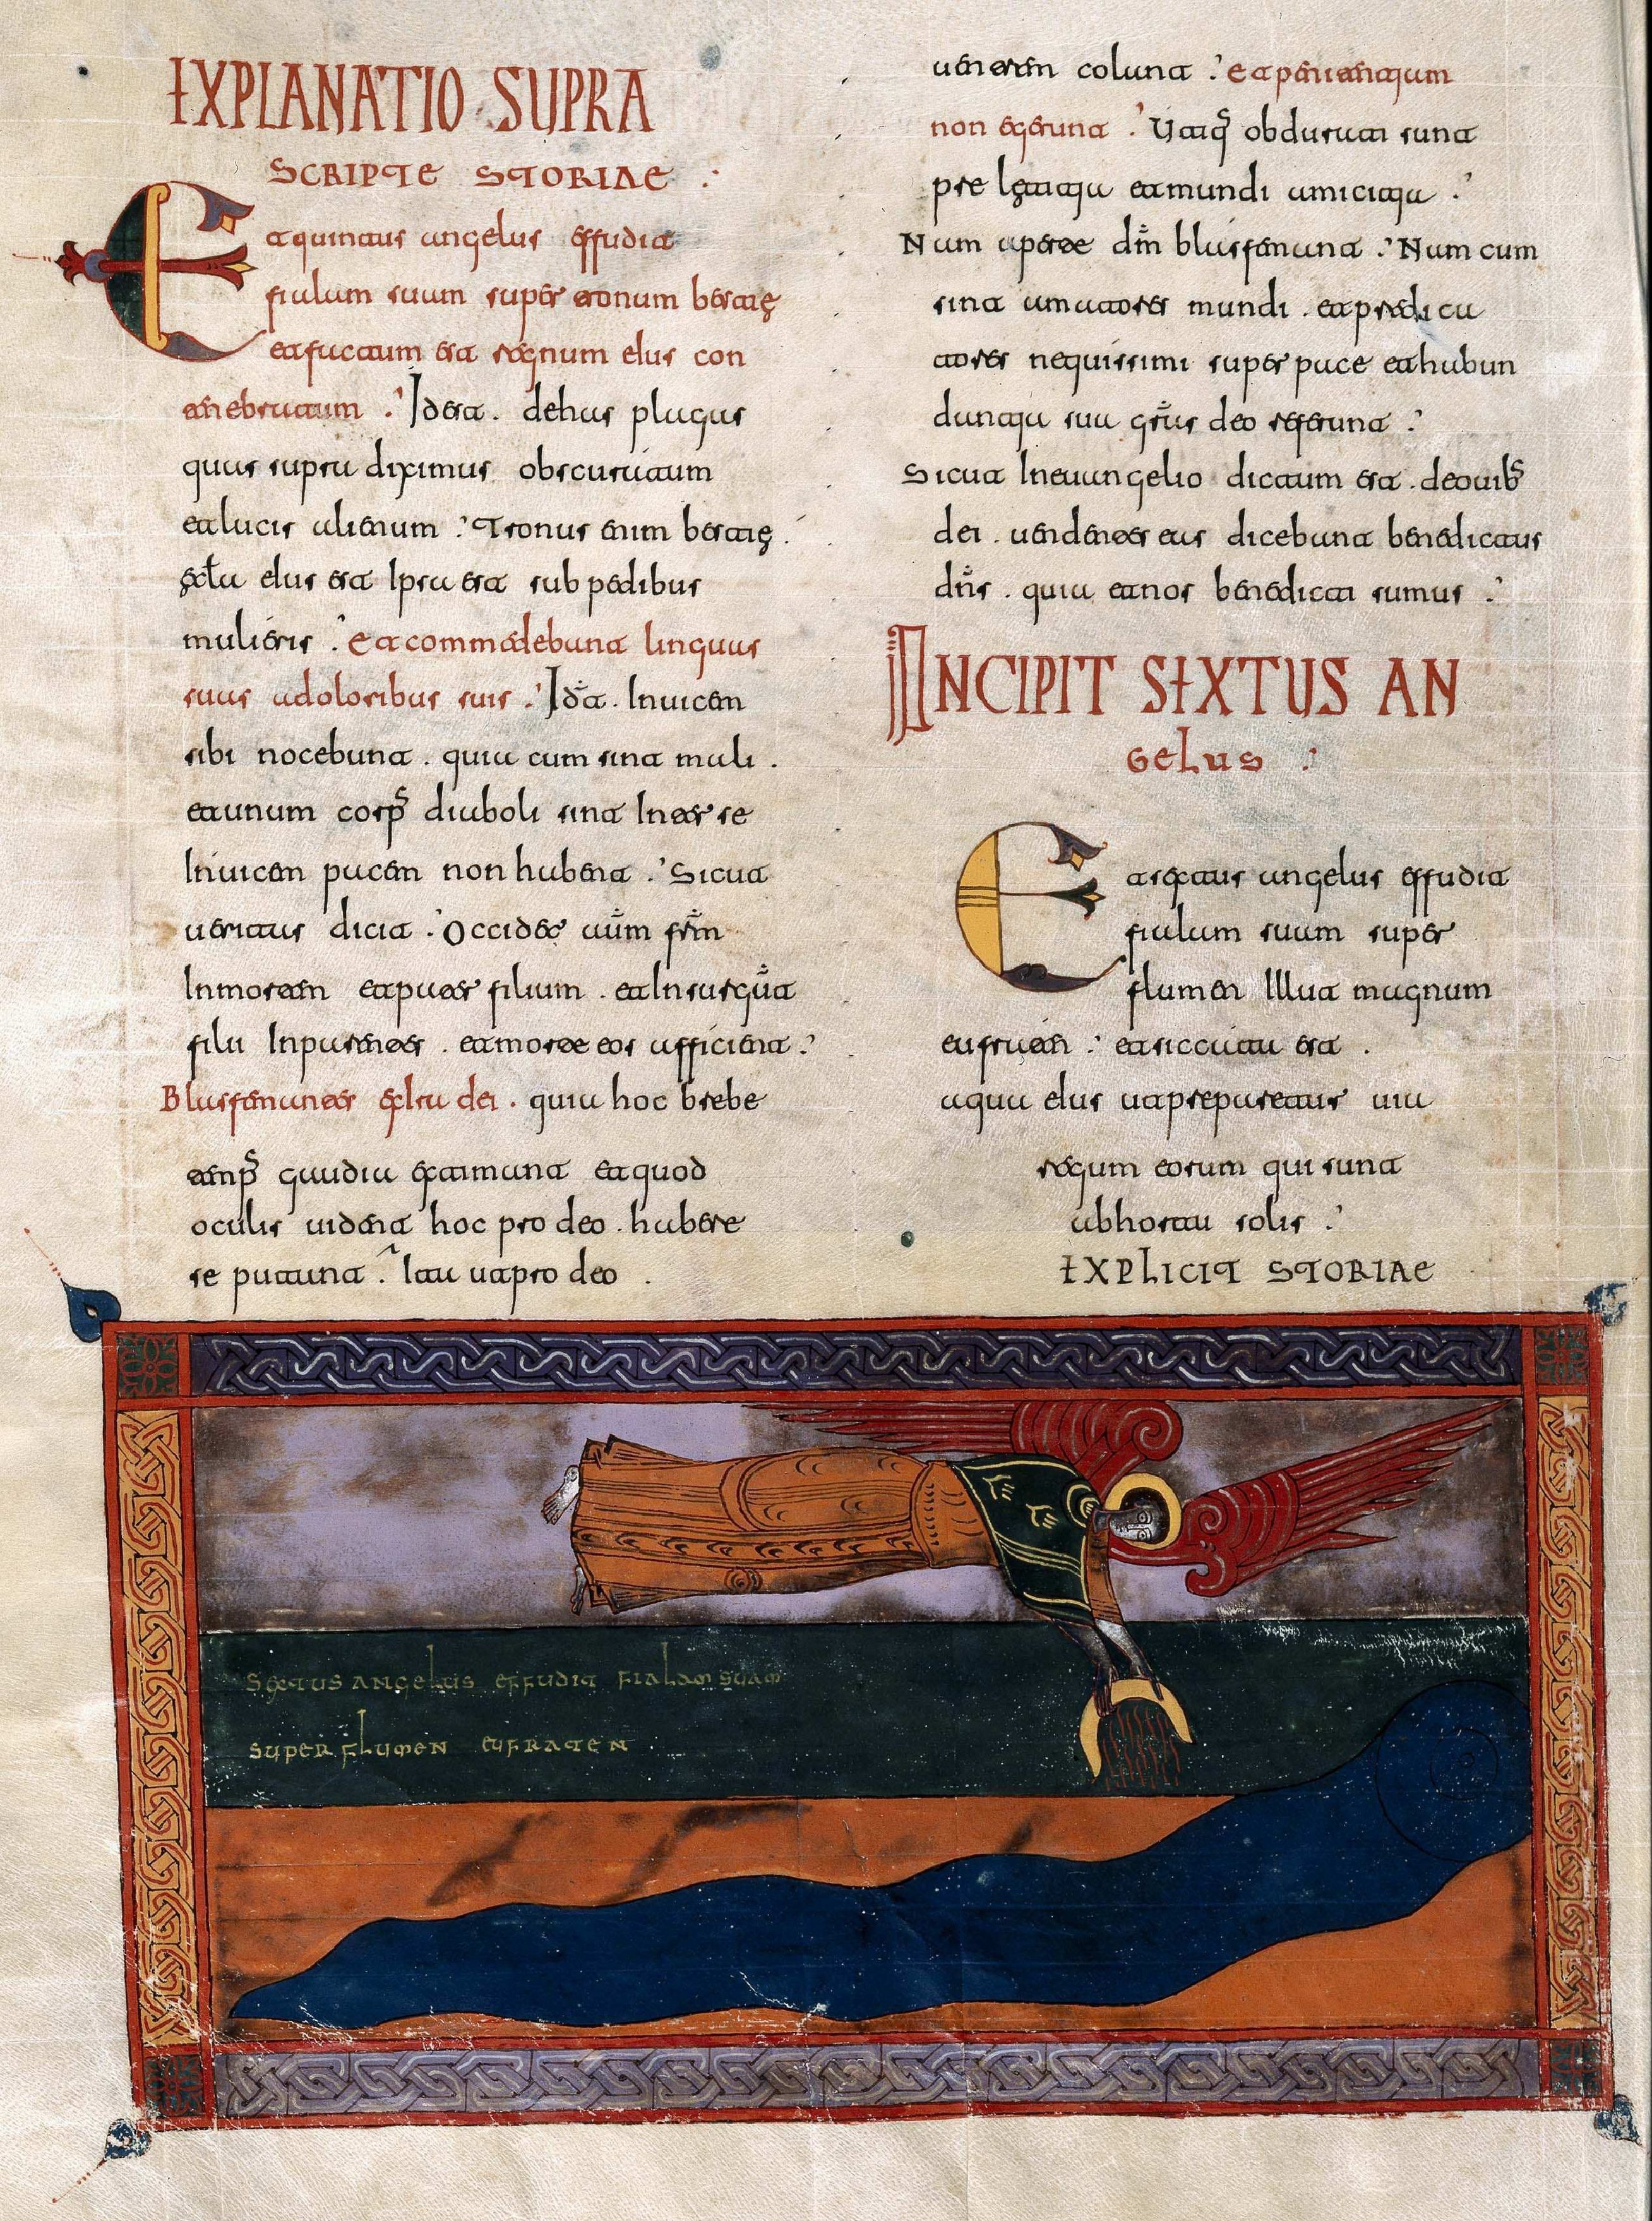 EXPLANATIO SUPRA
SCRIPTE STORIAE :
Et quintus angelus effudit
fialam suam super tronum bestię
et factum est regnum eius con
tenebratum : Id est . de has plagas
quas supra diximus obscuratum
et lucis alienum : Tronus enim bestię .
eius est ipsa est sub pedibus
mulieris : et commedebant linguas
suas a doloribus suis : Id est . Invicem
sibi nocebunt . quia cum sint mali .
et unum corps diaboli sint inter se
invicem pacem non habent : Sicut
veritas dicit : Occidet aum frm
in mortem et pater filium . et insurgunt
filii in parentes . et morte eos afficient :
Blasfemantes dei . quia hoc brebe
temps gaudia extimant et quod
oculis vident hoc pro deo . habere
se putant : Ita ut pro deo .
ventrem colunt : et penitentiam
non egerunt : Utiq obdurati sunt
pre letitia et mundi amicitia :
Nam aperte dm blasfemant : Nam cum
sint amatores mundi . et predica
tores nequissimi super pace et habun
dantia sua grs deo referunt :
Sicut in evangelio dictum est . de ovibs
dei . vendentes eas dicebant benedictus
dns . quia et nos benedicti sumus :
INCIPIT SEXTUS AN
GELUS :
Et sextus angelus effudit
fialam suam super
flumen illut magnum
eufraten : et siccata est .
aqua eius ut preparetur via
regum eorum qui sunt
ab hortu solis :
EXPLICIT STORIAE
SEXTUS ANGELUS EFFUDIT FIALAM SUAM
SUPER FLUMEN EUFRATEN .